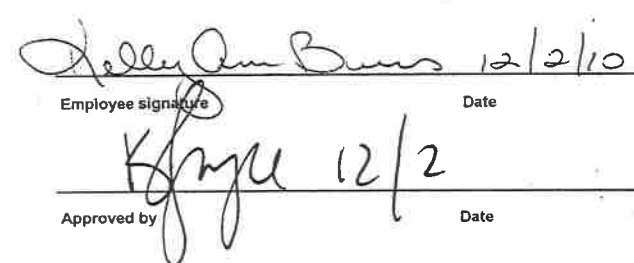 Kelly Ann Burns 12/2/10
Employee signature Date
12/2
Approved by Date